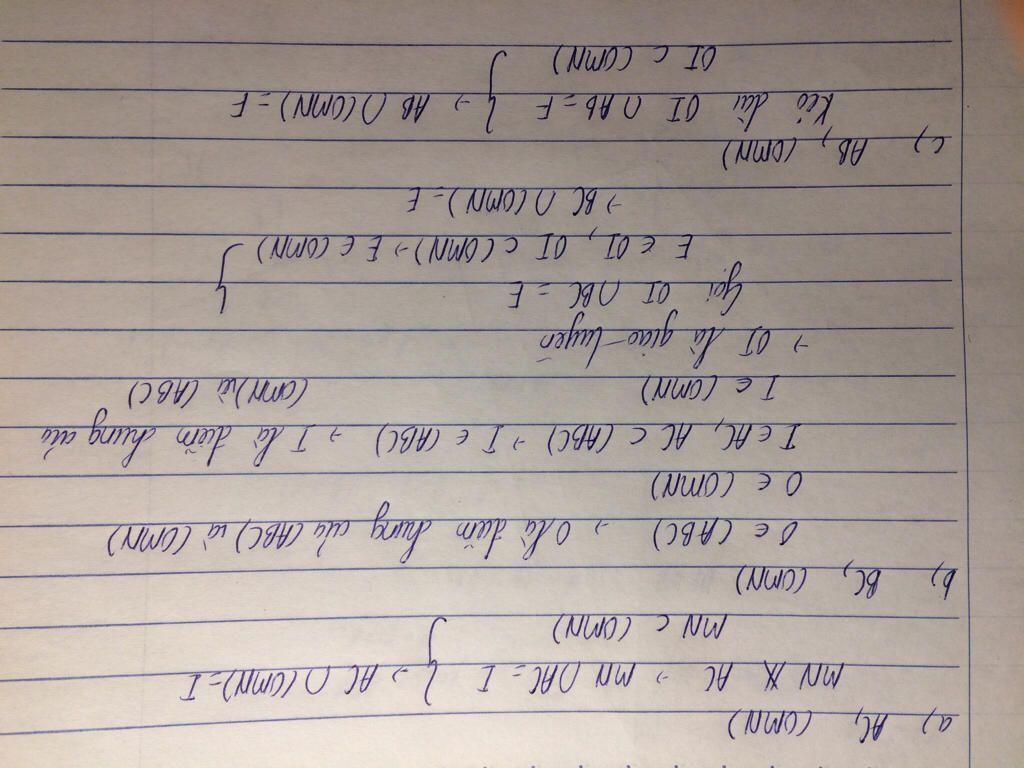 a) AC, (OMN)
MN ∦ AC → MN ∩ AC = I } → AC ∩ (OMN) = I
MN ⊂ (OMN)
b) BC, (OMN)
O ∈ (ABC) → O là điểm chung của (ABC) và (OMN)
O ∈ (OMN)
I ∈ AC, AC ⊂ (ABC) → I ∈ (ABC) → I là điểm chung của
I ∈ (OMN) (OMN) và (ABC)
→ OI là giao tuyến
Gọi OI ∩ BC = E }
E ∈ OI, OI ⊂ (OMN) → E ∈ (OMN)
→ BC ∩ (OMN) = E
c) AB, (OMN)
Kéo dài OI ∩ AB = F } → AB ∩ (OMN) = F
OI ⊂ (OMN)